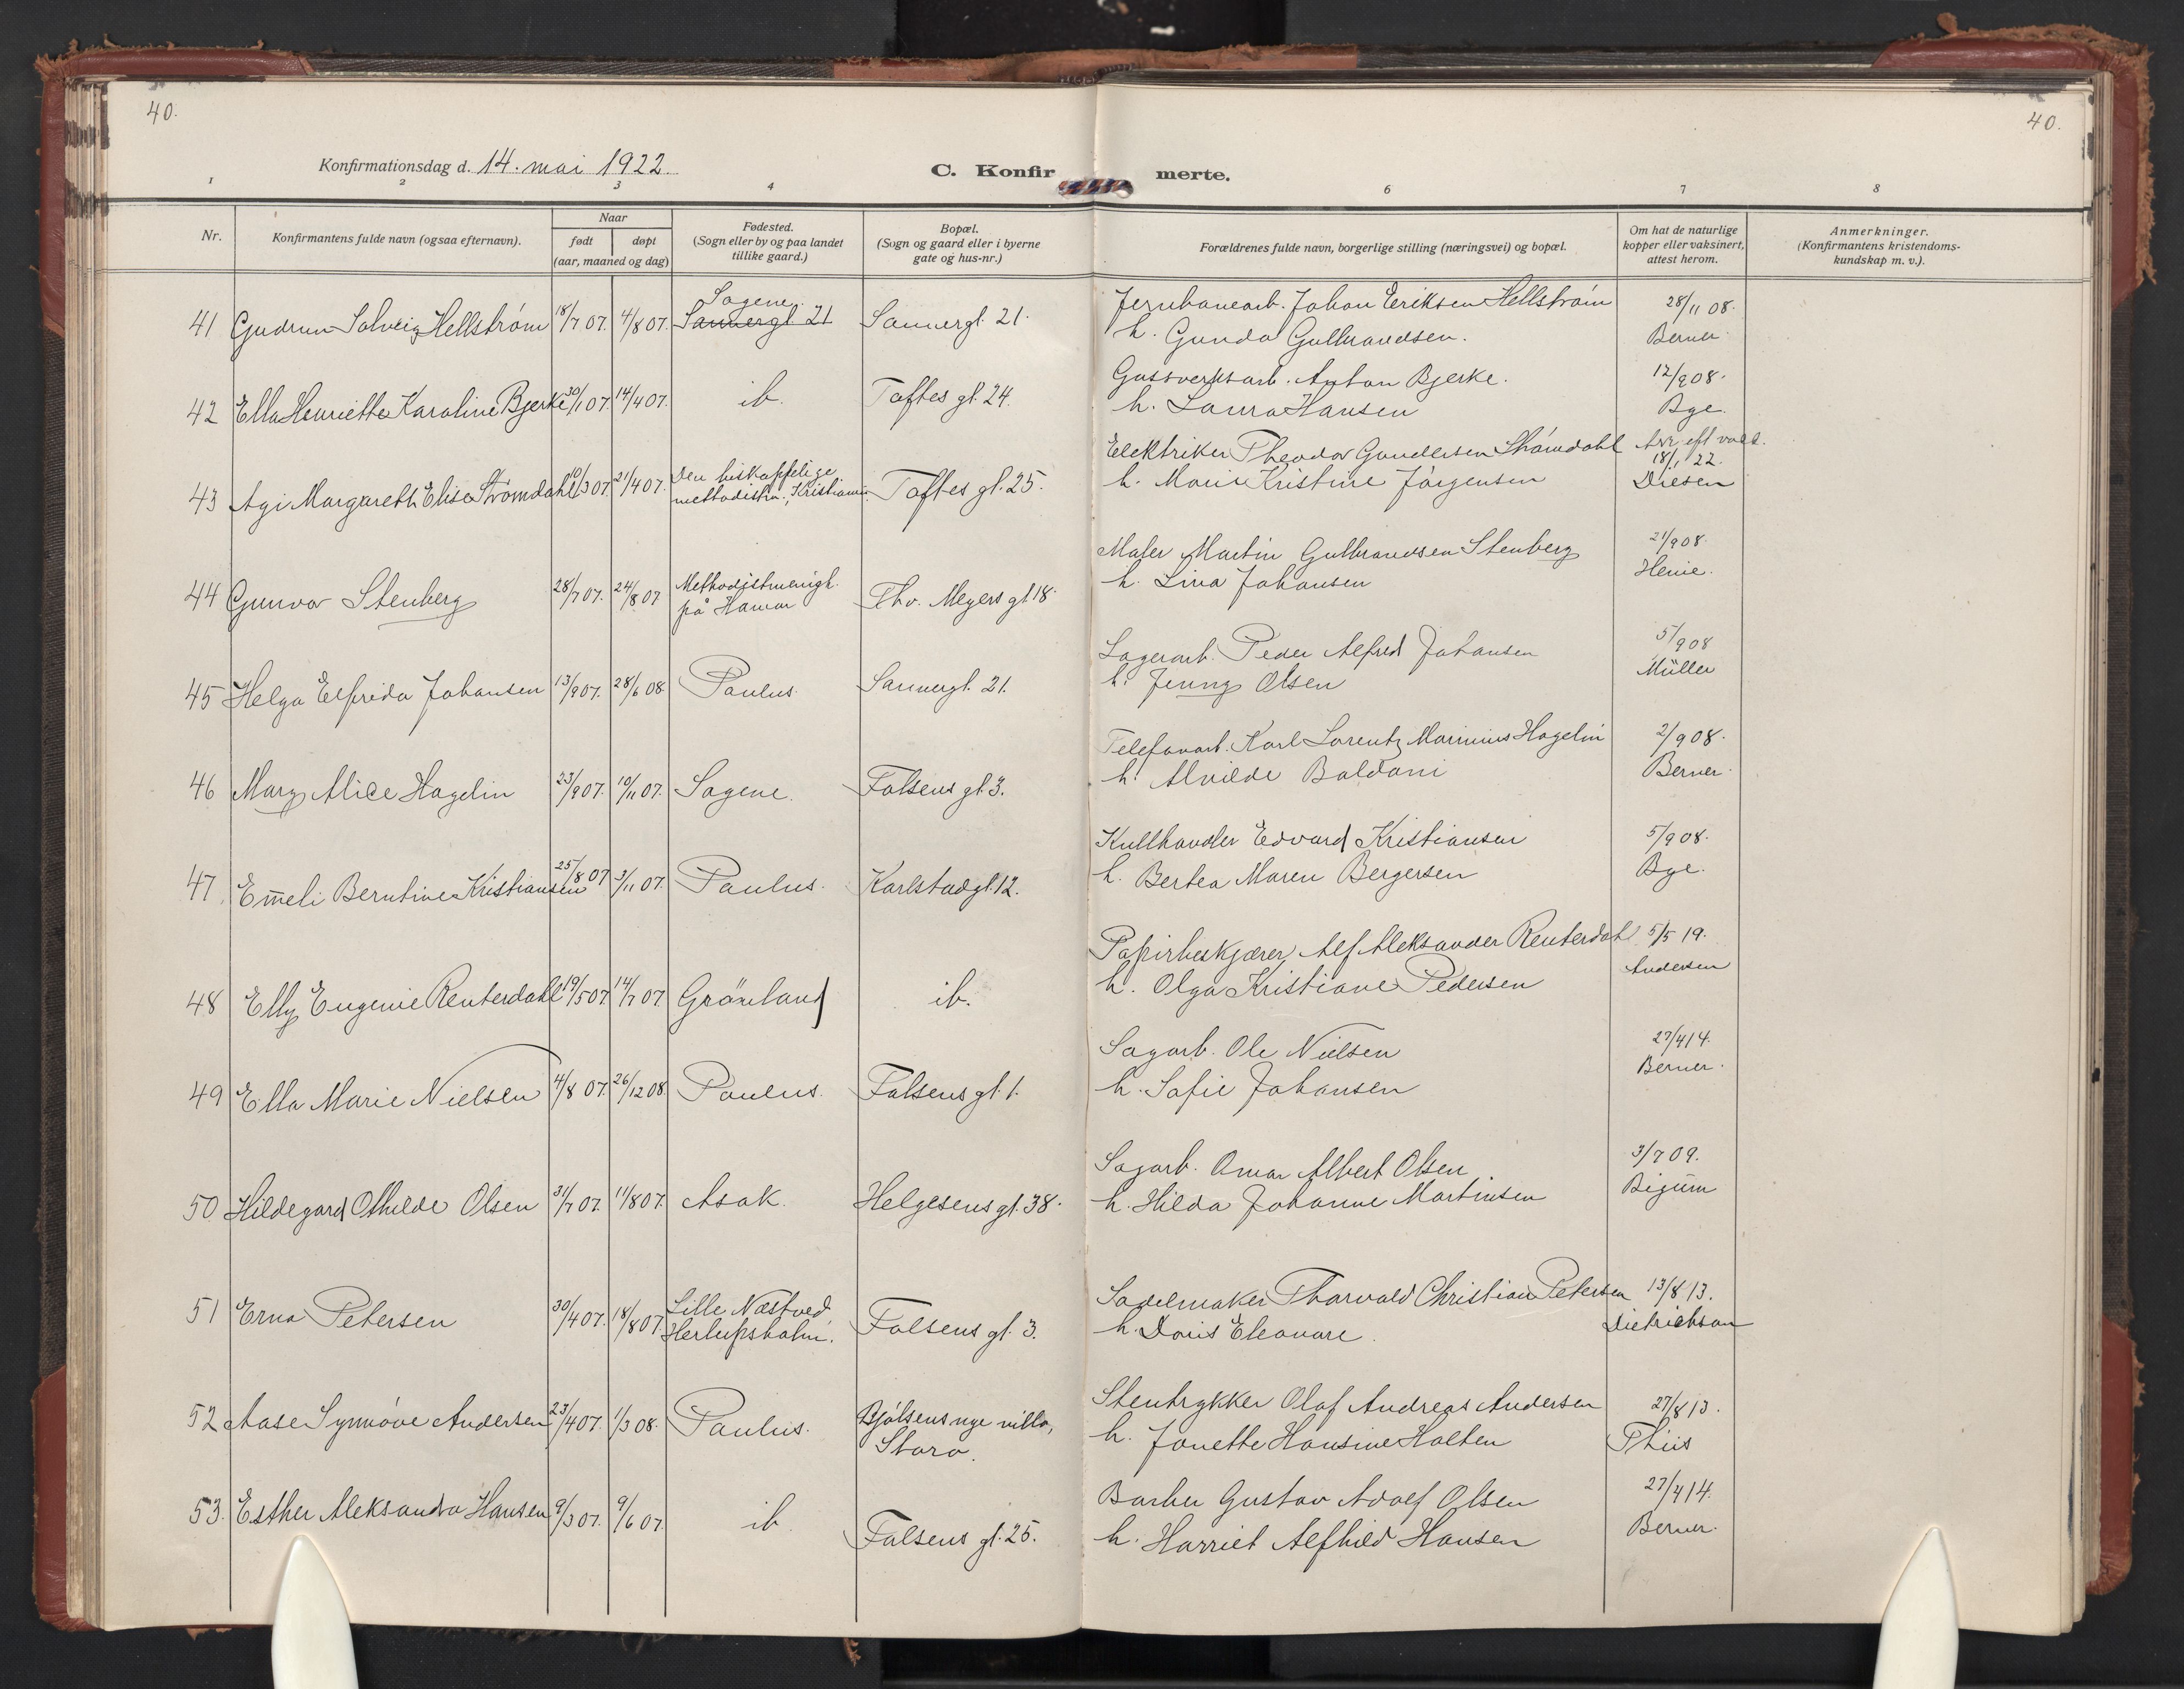 40.
40.
Konfirmationsdag d. 14. mai 1922.
C. Konfirmerte.
1 2 3 4 6 7 8
Nr.
Konfirmantens fulde navn (ogsaa efternavn).
Naar
født
døpt
(aar, maaned og dag)
Fødested.
(Sogn eller by og paa landet
tillike gaard.)
Bopæl.
(Sogn og gaard eller i byerne
gate og hus-nr.)
Forældrenes fulde navn, borgerlige stilling (næringsvei) og bopæl.
Om hat de naturlige
kopper eller vaksinert,
attest herom.
Anmerkninger.
(Konfirmantens kristendoms-
kundskap m. v.).
41 Gudrun Solveig Hellström 18/7 07. 4/8 07. Sagene. Sannergt. 21 Sannergt. 21.
Jernbanearb. Johan Eeriksen Hellström
h. Gunda Gulbrandsen.
28/11 08.
Berner.
42 Ella Henriette Karoline Bjerke 30/1 07. 14/4 07. ib. Toftes gt. 24.
Gassverksarb. Anton Bjerke.
h. Laura Hansen
12/9 08.
Bge.
43 Agi Margareth Elise Strömdahl 10/3 07. 21/4 07. Den biskoppelige
methodistm., Kristiania. Toftes gt. 25.
Elektriker Theodor Gundersen Strömdahl
h. Marie Kristine Jörgensen
18/1 22.
Diesen
44 Gunvor Stenberg 28/7 07. 24/8 07 Methodistmenigh.
på Hamar Thv. Meyers gt 18.
Maler Martin Gulbrandsen Stenberg
h. Lina Johansen
21/9 08.
Henie.
45 Helga Elfrida Johansen 13/9 07. 28/6 08. Paulus. Sannergt. 21.
Lagerarb. Peder Alfred Johansen
h. Jenny Olsen
5/9 08
Müller
46 Mary Alice Hagelin 23/9 07. 10/11 07. Sagene. Falsens gt. 3.
Telefonarb. Karl Lorentz Marinius Hagelin
h. Alvilde Baldani
2/9 08.
Berner.
47 Emeli Berntine Kristiansen 25/8 07 3/11 07. Paulus. Karlstadgt. 12.
Kullhandler Edvard Kristiansen
h. Bertea Maren Bergersen
5/9 08.
Bge.
48 Elly Eugenie Renterdahl 19/5 07. 14/7 07. Grönland ib.
Papirbeskjærer Alf Aleksander Renterdahl
h. Olga Kristiane Pedersen
5/5 19.
Andersen
49 Ella Marie Nielsen 4/8 07. 26/12 08. Paulus. Falsens gt. 1.
Sagarb. Ole Nielsen
h. Sofie Johansen
27/4 14.
Berner.
50 Hildegard Othilde Olsen 31/7 07. 11/8 07. Asak. Helgesens gt. 38.
Sagarb. Omar Albert Olsen
h. Hilda Johanne Martinsen
3/7 09.
Bigum
51 Erna Petersen 30/4 07. 18/8 07. Lille Næstved
Herlufsholm. Falsens gt. 3.
Sadelmaker Thorvald Christian Petersen
h. Doris Eleonore.
13/8 13.
Dietrichson
52 Aase Synnöve Andersen 23/4 07. 1/3 08. Paulus. Bjölsens nye villa,
Storo.
Stentrykker Olaf Andreas Andersen
h. Jonette Hansine Holten
27/8 13.
Thiis
53. Esther Aleksandra Hansen 9/3 07. 9/6 07. ib. Falsens gt. 25.
Barber Gustav Adolf Olsen
h. Harriet Alfhild Hansen
27/4 14.
Berner.